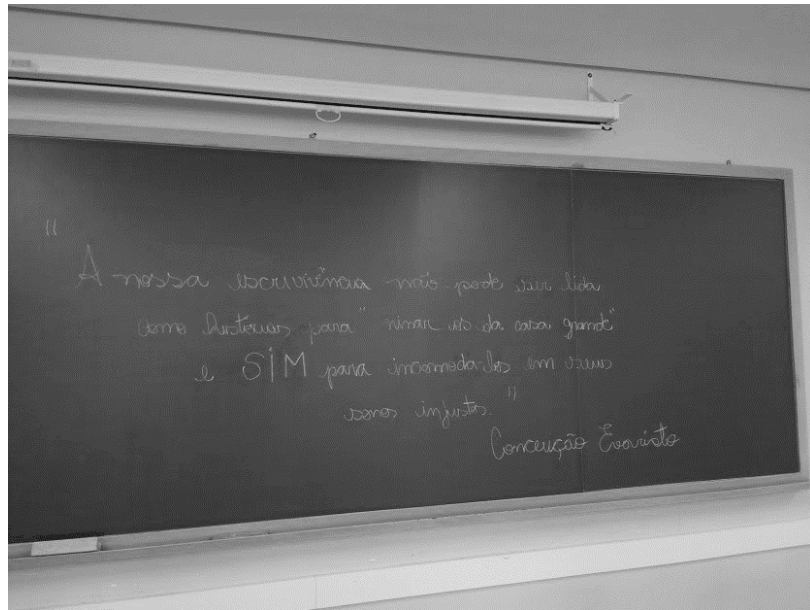 "
A nossa escrivivência não pode ser lida
como histórias para "ninar os da casa grande"
e SIM para incomodá-los em seus
sonos injustos."
Conceição Evaristo